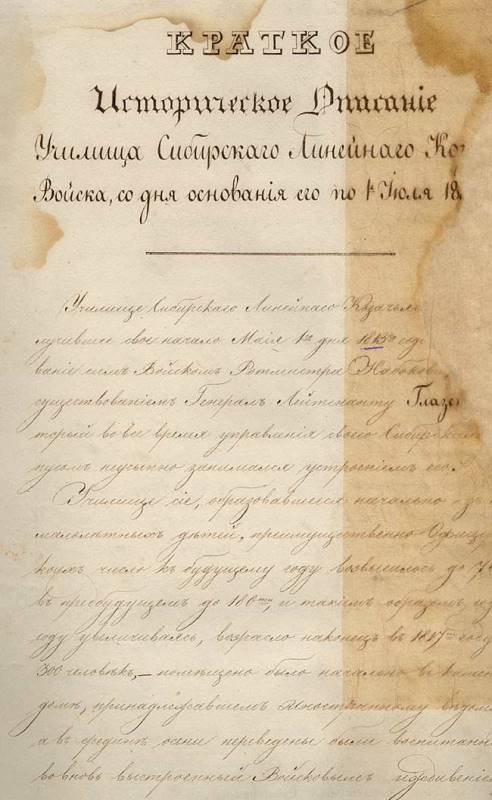 КРАТКОЕ
Историческое Описаніе
Училища Сибирскаго Линейнаго Ко
Войска, со дня основанія его по 1е Іюля 18
Училище Сибирскаго Линейнаго Казачья
лучившее свое начало Маія 1го дня 18
ваніе симъ Войскомъ Ротмистра Набоков
существованіемъ Генералъ Лейтенанту Глазе
торый во все время управленія своего Сибирским
пусомъ неусыпно занимался устроеніемъ его.
Училище сіе, образовавшееся начально
малолѣтныхъ дѣтей, преимущественно Офице
коихъ число къ будущему году возвысилось до
въ пребудущемъ до 180ти, и такимъ образомъ, из
году увеличиваясь, возрасло наконецъ въ 18
300 человѣкъ, — помѣщено было начально въ
домѣ, принадлежавшемъ Иностранному вѣдом
а въ срединѣ осени переведены были воспитан
во вновь выстроенный Войсковымъ